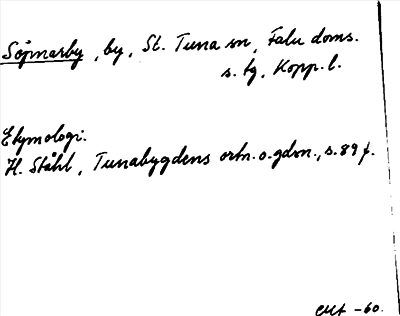 Söjmarby, by, St. Tuna sn, Falu doms.
s. tg, Kopp. l.
Etymologi:
H. Ståhl, Tunabygdens ortn. o. gdsn., s. 89 f.
-60.